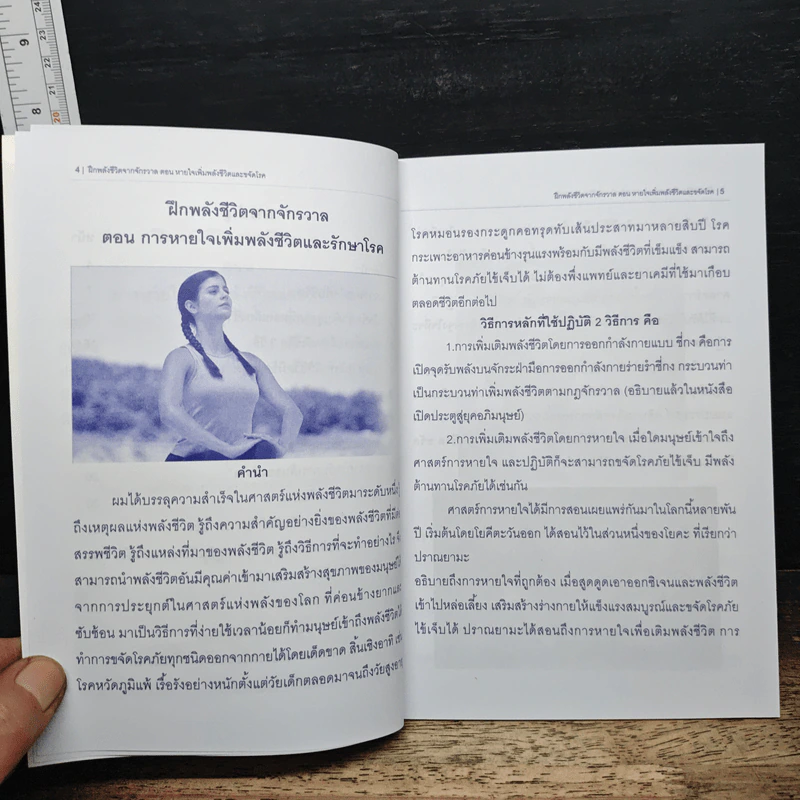 9
8
24
23
22
21
20
4 | ฝึกพลังชีวิตจากจักรวาล ตอน หายใจเพิ่มพลังชีวิตและขจัดโรค
ฝึกพลังชีวิตจากจักรวาล
ตอน การหายใจเพิ่มพลังชีวิตและรักษาโรค
คำนำ
ผมได้บรรลุความสำเร็จในศาสตร์แห่งพลังชีวิตมาระดับหนึ่ง
ถึงเหตุผลแห่งพลังชีวิต รู้ถึงความสำคัญอย่างยิ่งของพลังชีวิตที่มี
สรรพชีวิต รู้ถึงแหล่งที่มาของพลังชีวิต รู้ถึงวิธีการที่จะทำอย่างไร
สามารถนำพลังชีวิตอันมีคุณค่าเข้ามาเสริมสร้างสุขภาพของมนุษย์
จากการประยุกต์ในศาสตร์แห่งพลังของโลก ที่ค่อนข้างยากและ
ซับซ้อน มาเป็นวิธีการที่ง่ายใช้เวลาน้อยก็ทำมนุษย์เข้าถึงพลังชีวิต
ทำการขจัดโรคภัยทุกชนิดออกจากกายได้โดยเด็ดขาด สิ้นเชิงอาทิ เช่น
โรคหวัดภูมิแพ้ เรื้อรังอย่างหนักตั้งแต่วัยเด็กตลอดมาจนถึงวัยสูงอายุ
ฝึกพลังชีวิตจากจักรวาล ตอน หายใจเพิ่มพลังชีวิตและขจัดโรค | 5
โรคหมอนรองกระดูกคอทรุดทับเส้นประสาทมาหลายสิบปี โรค
กระเพาะอาหารค่อนข้างรุนแรงพร้อมกับมีพลังชีวิตที่เข้มแข็ง สามารถ
ต้านทานโรคภัยไข้เจ็บได้ ไม่ต้องพึ่งแพทย์และยาเคมีที่ใช้มาเกือบ
ตลอดชีวิตอีกต่อไป
วิธีการหลักที่ใช้ปฏิบัติ 2 วิธีการ คือ
1.การเพิ่มเติมพลังชีวิตโดยการออกกำลังกายแบบ ชี่กง คือการ
เปิดจุดรับพลังบนจักระฝ่ามือการออกกำลังกายร่ายรำชี่กง กระบวนท่า
เป็นกระบวนท่าเพิ่มพลังชีวิตตามกฎจักรวาล (อธิบายแล้วในหนังสือ
เปิดประตูสู่ยุคอภิมนุษย์)
2.การเพิ่มเติมพลังชีวิตโดยการหายใจ เมื่อใดมนุษย์เข้าใจถึง
ศาสตร์การหายใจ และปฏิบัติก็จะสามารถขจัดโรคภัยไข้เจ็บ มีพลัง
ต้านทานโรคภัยได้เช่นกัน
ศาสตร์การหายใจได้มีการสอนเผยแพร่กันมาในโลกนี้หลายพัน
ปี เริ่มต้นโดยโยคีตะวันออก ได้สอนไว้ในส่วนหนึ่งของโยคะ ที่เรียกว่า
ปราณยามะ
อธิบายถึงการหายใจที่ถูกต้อง เมื่อสูดดูดเอาออกซิเจนและพลังชีวิต
เข้าไปหล่อเลี้ยง เสริมสร้างร่างกายให้แข็งแรงสมบูรณ์และขจัดโรคภัย
ไข้เจ็บได้ ปราณยามะได้สอนถึงการหายใจเพื่อเติมพลังชีวิต การ